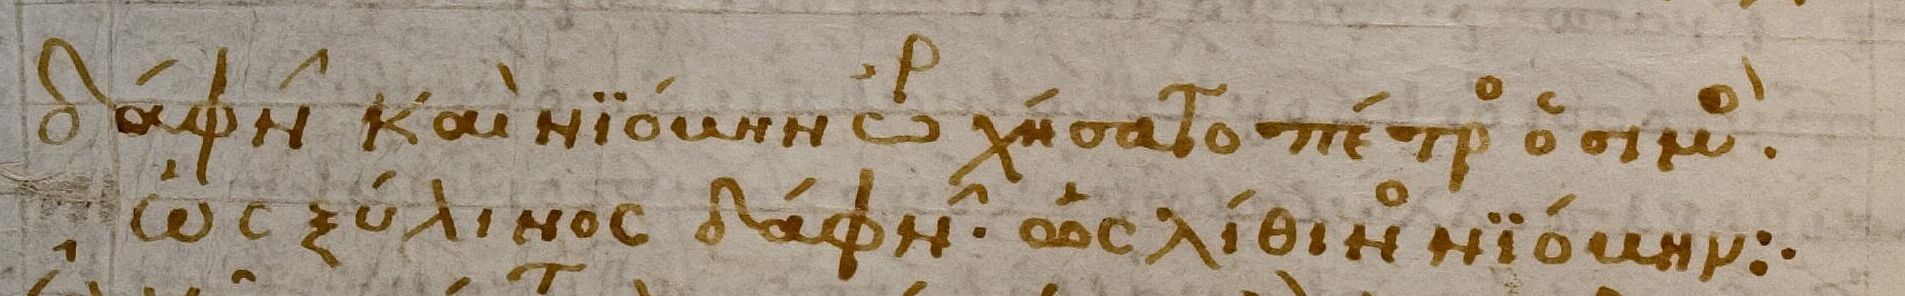 δάφν καὶ νϊόβην ὠρχήσατο πέτρο ὁ σιμό.
ὡς ξύλινος δάφνην· ὡς λίθινο νϊόβην:·